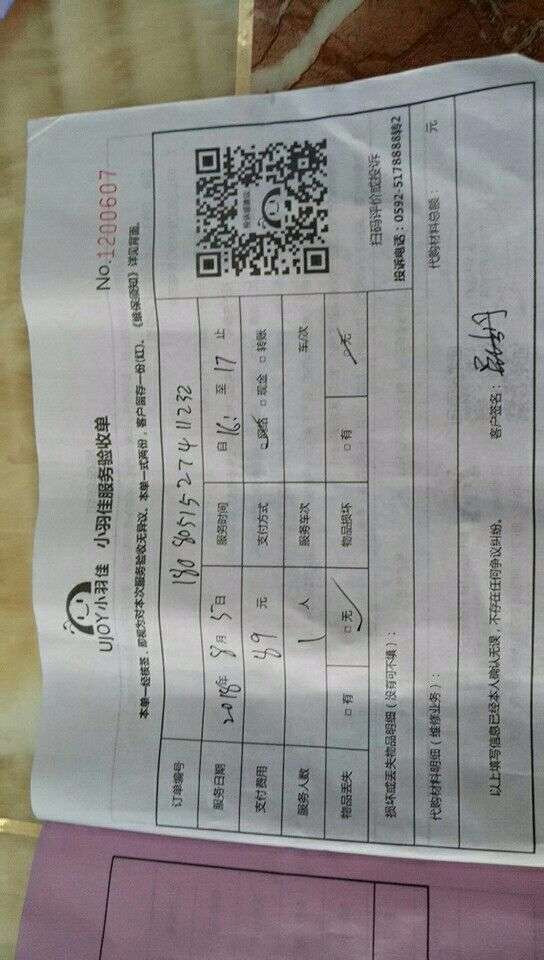 UJOY小羽佳 小羽佳服务验收单 No.1200607
本单一经核签，即视为对本次服务验收无异议。本单一式两份，客户留存一份(红)。《维保须知》详见背面。
订单编号 180805152741 1232
服务日期 2018年 8月 5日 服务时间 自 16: 至 17 止
支付费用 89 元 支付方式 ☑网络 □现金 □转账
服务人数 1 人 服务车次 车/次
物品丢失 □有 ☑无 物品损坏 □有 ☑无
扫码评价或投诉
投诉电话：0592-5178888转2
损坏或丢失物品明细（没有可不填）：
代购材料明细（维修业务）： 代购材料总额： 元
以上填写信息已经本人确认无误，不存在任何争议纠纷。
客户签名：